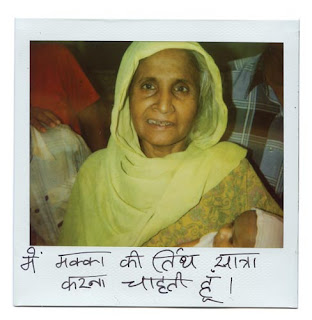 मैं मक्का की तिर्थ यात्रा
करना चाहती हूँ ।